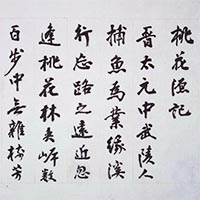 桃花源記
晉太元中武陵人
捕魚為業緣溪
行忘路之遠近忽
逢桃花林夾岸數
百步中無雜樹芳